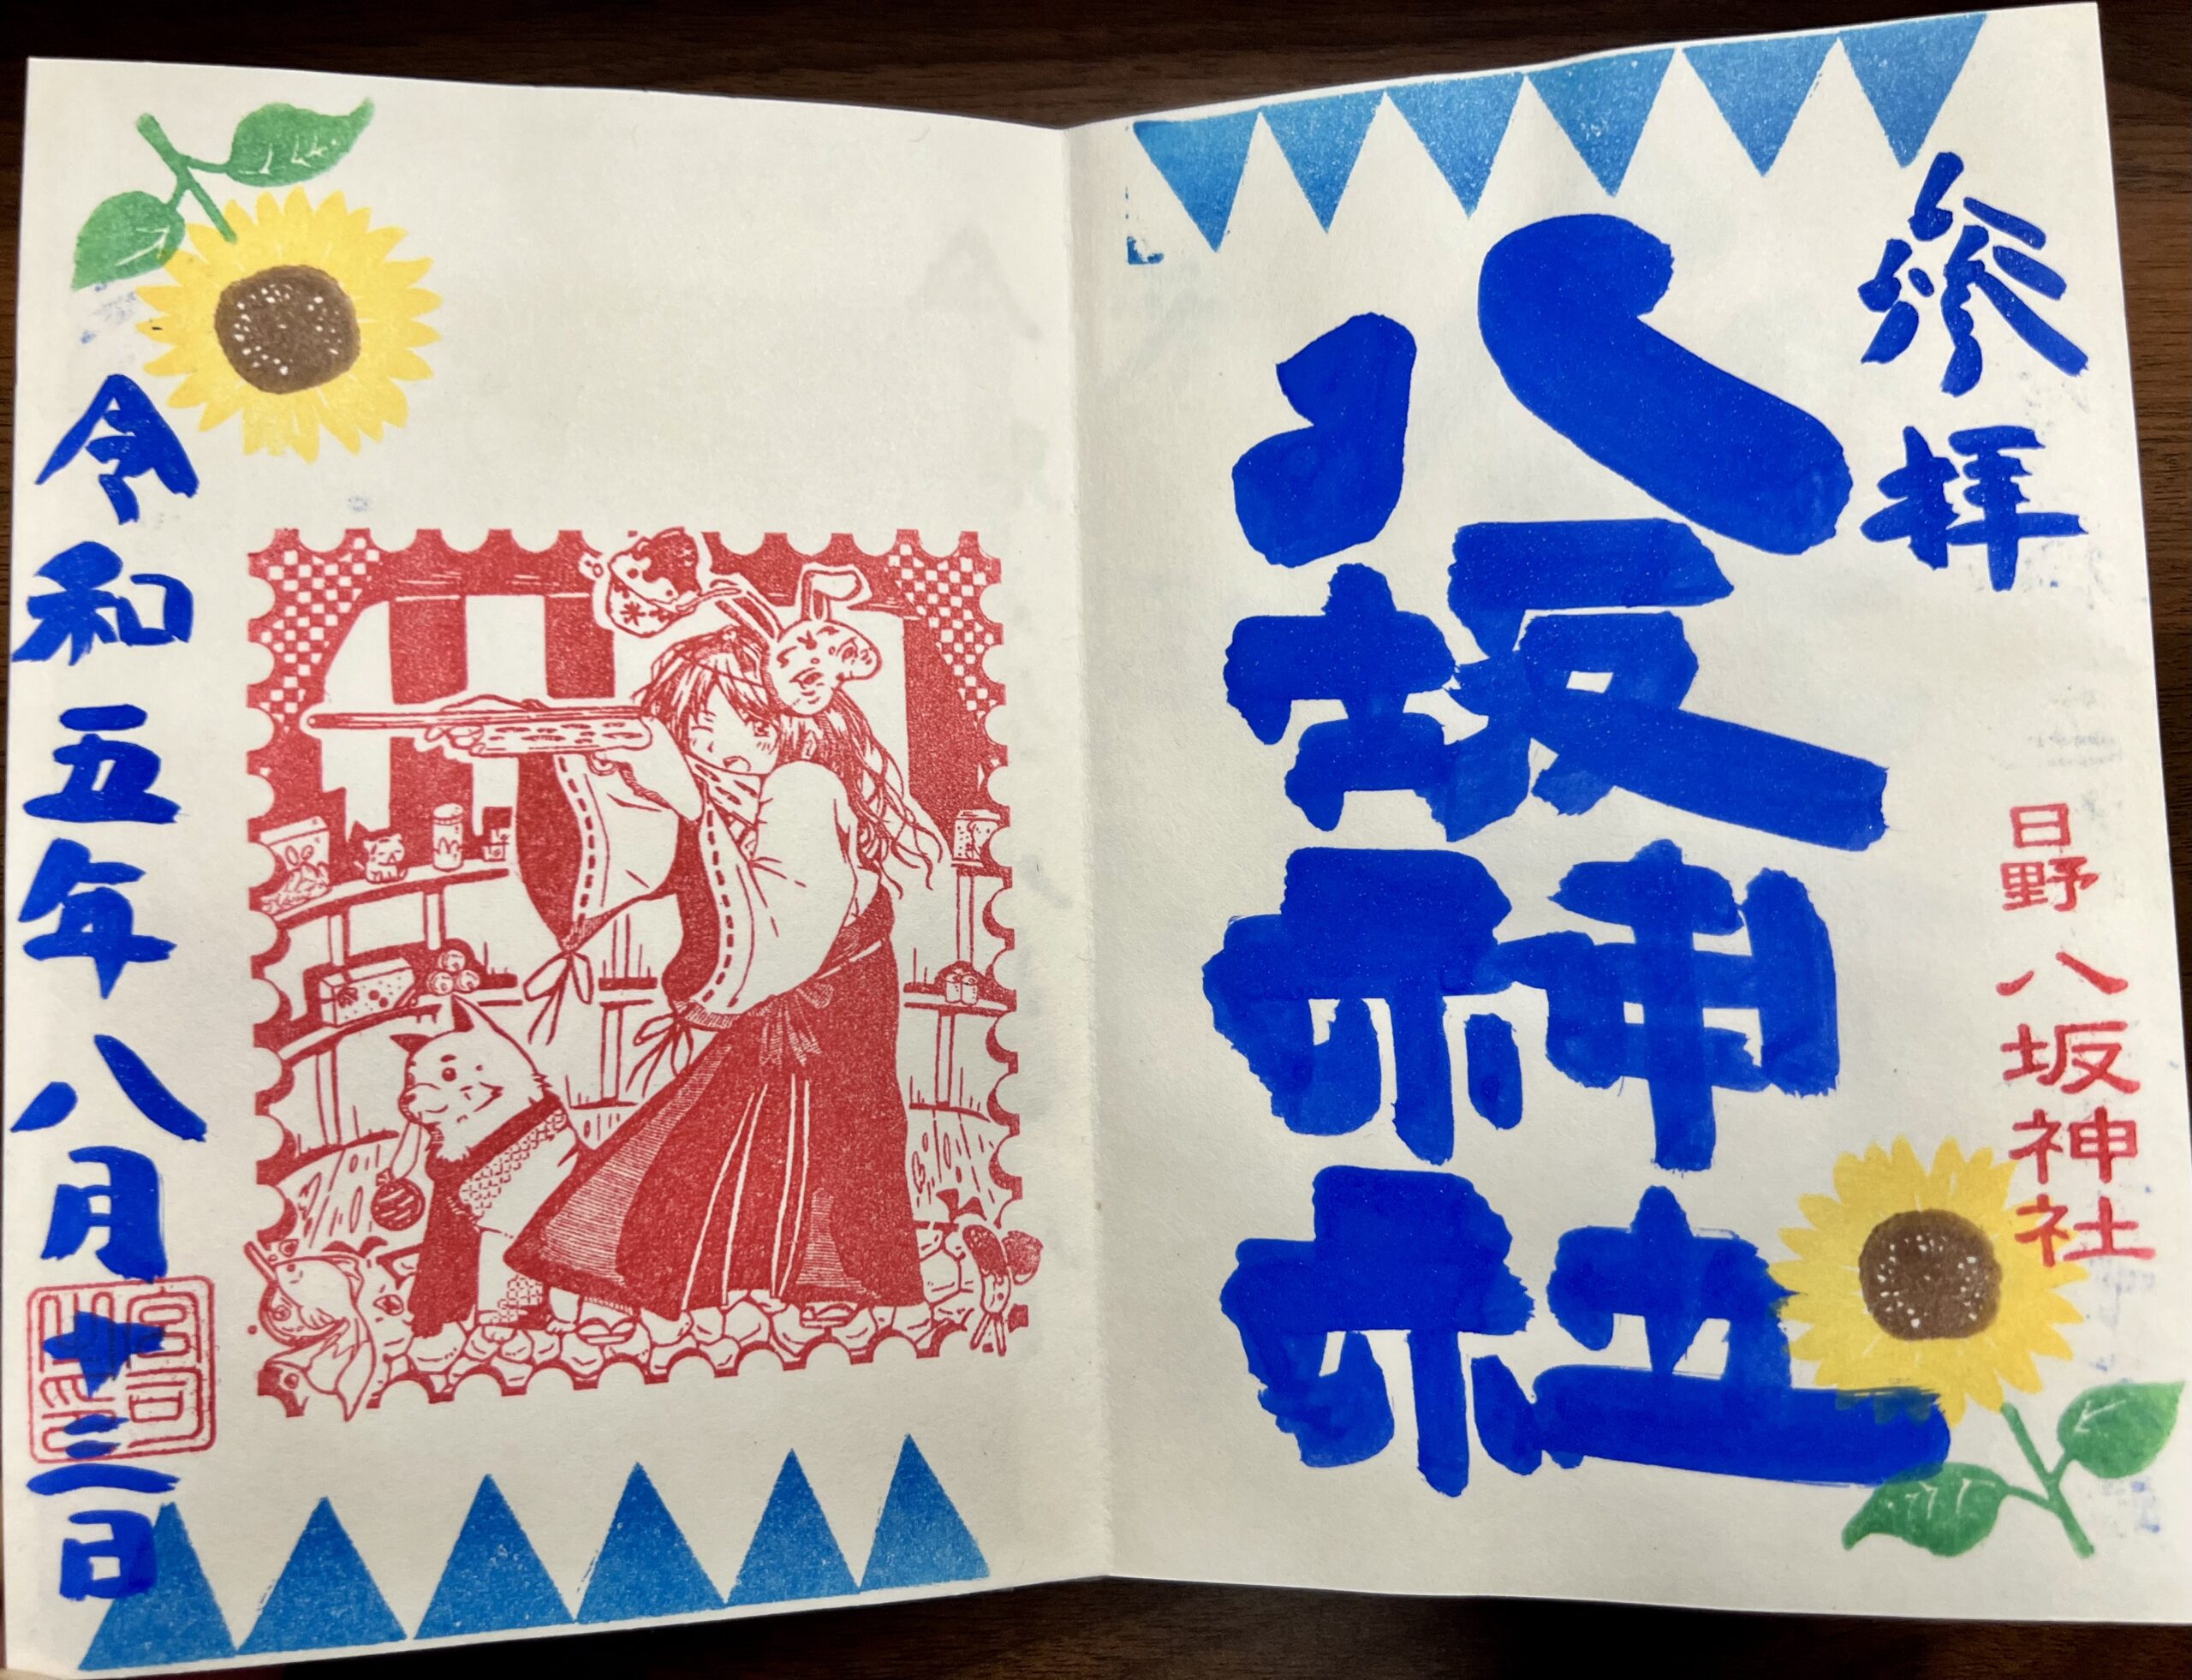 參拜
日野八坂神社
八坂神社
令和五年八月廿三日
宮司